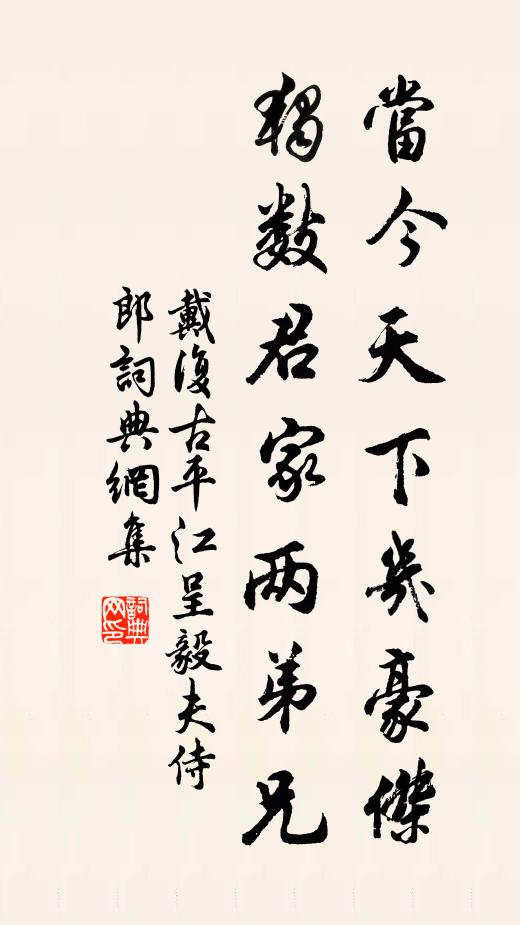 當今天下幾豪傑
獨數君家两弟兄
戴復古平江呈毅夫侍
郎詞典網集
詞典网印